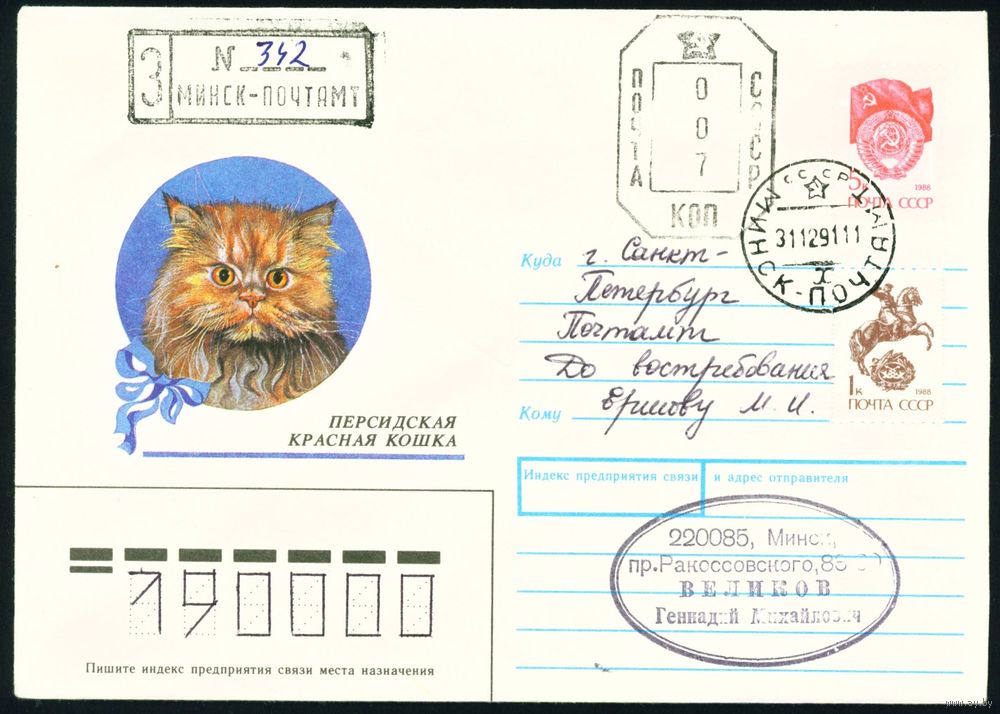 З
N 342
МИНСК-ПОЧТАМТ
ПОЧТА
СССР
007
КОП
5к
1988
ПОЧТА СССР
СССР
МИНСК-ПОЧТАМТ
31129111
Х
Куда г. Санкт-
Петербург
Почтамт
До востребования
Кому Ершову М. И.
1к
1988
ПОЧТА СССР
ПЕРСИДСКАЯ
КРАСНАЯ КОШКА
Индекс предприятия связи и адрес отправителя
220085, Минск,
пр.Ракоссовского,
ВЕЛИКОВ
Геннадий Михайлович
190000
Пишите индекс предприятия связи места назначения
www.ay.by